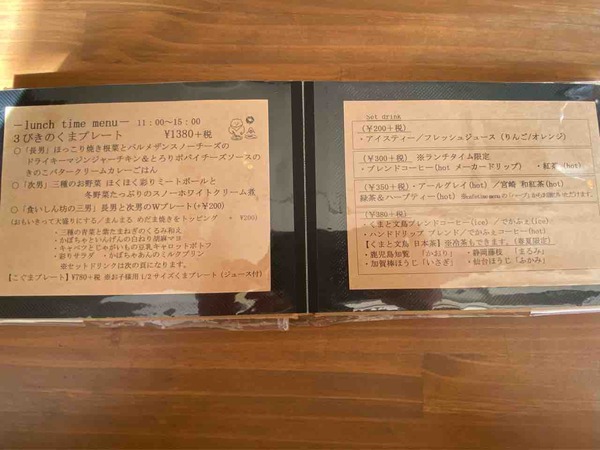 －lunch time menu－ 11：00～15：00
3びきのくまプレート ¥1380＋税
○「長男」ほっこり焼き根菜とパルメザンスノーチーズの
ドライキーマジンジャーチキン＆とろりポパイチーズソースの
きのこバタークリームカレーごはん
○「次男」三種のお野菜 ほくほく彩りミートボールと
冬野菜たっぷりのスノーホワイトクリーム煮
○「食いしん坊の三男」長男と次男のWプレート(+¥200)
(おもいきって大盛りにする／まんまる めだま焼きをトッピング ・¥200)
・三種の青菜と葉たまねぎのくるみ和え
・かぼちゃといんげんの白ねり胡麻マヨ
・キャベツとじゃがいもの豆乳キャロットポトフ
・彩りサラダ ・かぼちゃあんのミルクプリン
※セットドリンクは次の頁になります。
【こぐまプレート】¥780＋税 ※お子様用1/2サイズくまプレート(ジュース付)
Set drink
(¥200＋税)
・アイスティー／フレッシュジュース(りんご/オレンジ)
(¥300＋税) ※ランチタイム限定
・ブレンドコーヒー(hot メーカードリップ) ・紅茶(hot)
(¥350＋税)・アールグレイ(hot)／宮崎 和紅茶(hot)
緑茶＆ハーブティー(hot)
(¥380＋税)
・くまと文鳥ブレンドコーヒー(ice)／でかふぇ(ice)
・ハンドドリップ ブレンド／でかふぇコーヒー(hot)
【くまと文鳥 日本茶】※冷茶もできます。(春夏限定)
・鹿児島知覧 「かおり」 ・静岡藤枝 「まるみ」
・加賀棒ほうじ「いさぎ」 ・仙台ほうじ「ふかみ」